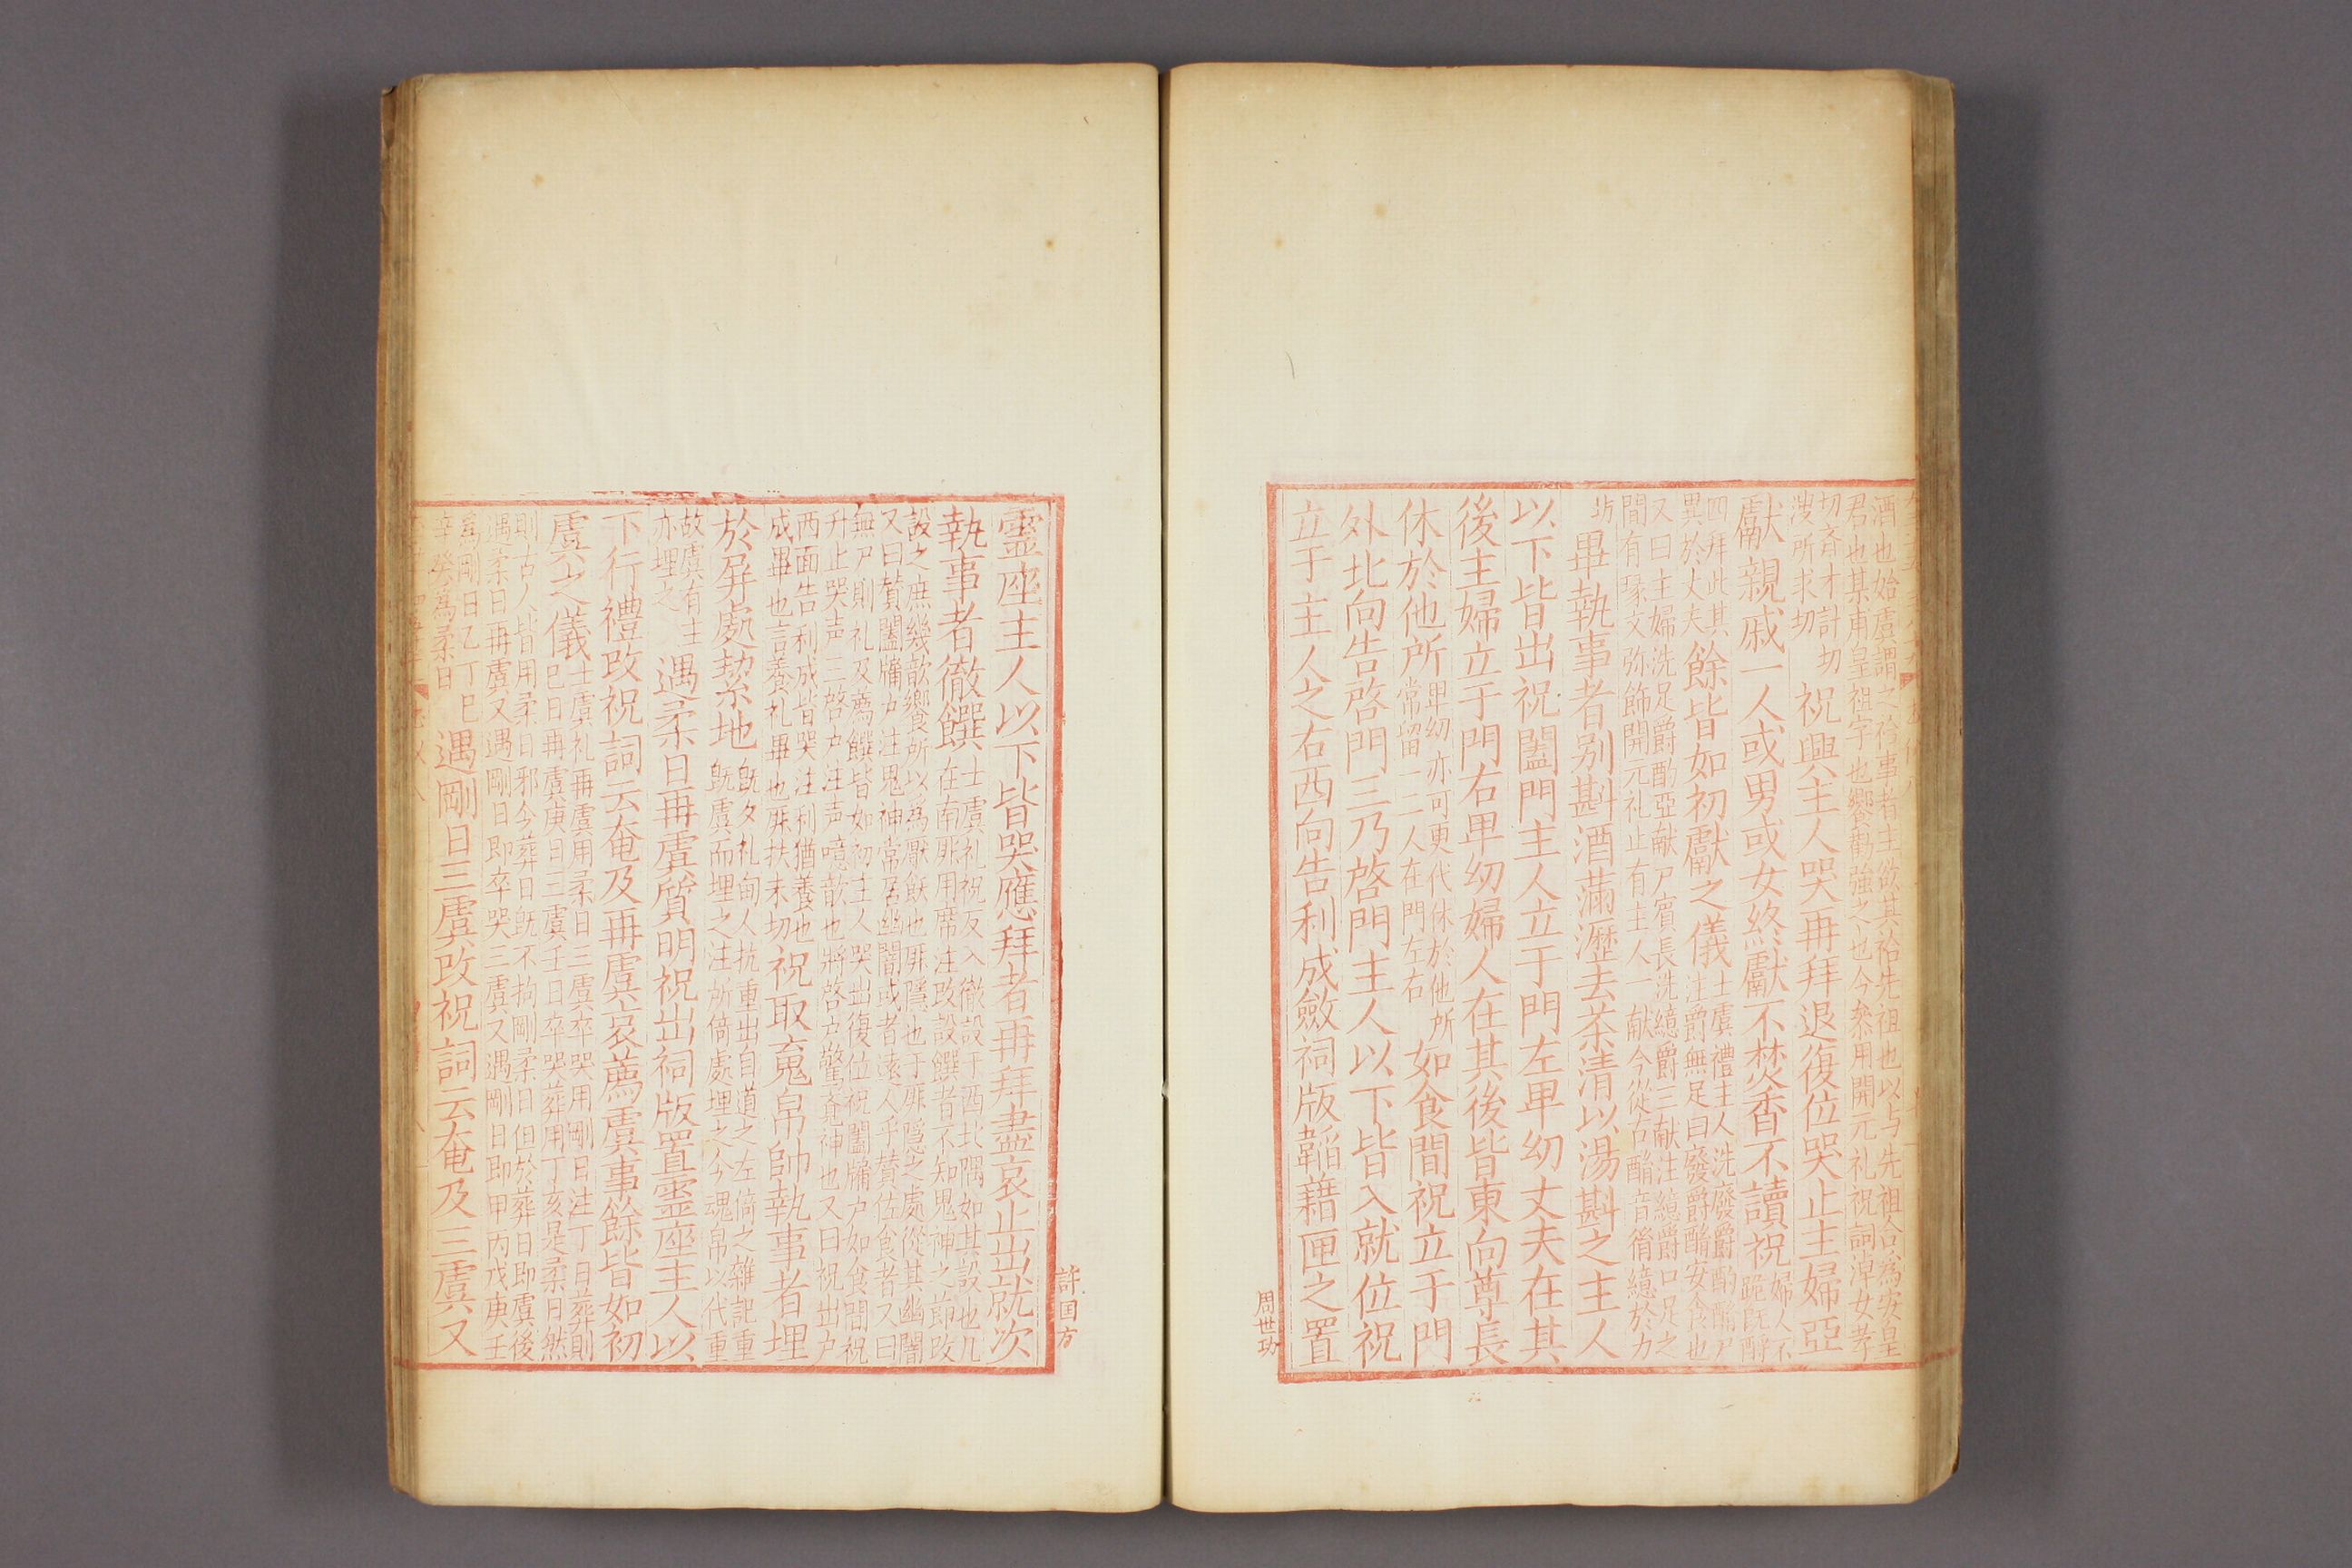 酒也始虞謂之祫事者主欲其祫先祖也以与先祖合爲安皇
君也某甫皇祖字也饗勸強之也今叅用開元礼祝詞淖女孝
切斉才計切
溲所求切
祝興主人哭再拜退復位哭止主婦亞
獻親戚一人或男或女終獻不焚香不讀祝
婦人不
跪既酳
四拜此其
異於丈夫
餘皆如初獻之儀
士虞禮主人洗廢爵酌酳尸
注爵無足曰廢爵酳安食也
又曰主婦洗足爵酌亞献尸賓長洗繶爵三献注繶爵口足之
間有篆文弥飾開元礼止有主人一献今從古酳音胤繶於力
切
畢執事者别斟酒滿瀝去茶清以湯斟之主人
以下皆出祝闔門主人立于門左卑幼丈夫在其
後主婦立于門右卑幼婦人在其後皆東向尊長
休於他所
卑幼亦可更代休於他所
常留一二人在門左右
如食間祝立于門
外北向告啓門三乃啓門主人以下皆入就位祝
立于主人之右西向告利成斂祠版韜藉匣之置
周世玏
靈座主人以下皆哭應拜者再拜盡哀止出就次
執事者徹饌
士虞礼祝反入徹設于西北隅如其設也几
在南厞用席注改設饌者不知鬼神之節改
設之庶幾歆饗所以爲厭飫也厞隱也于厞隱之處從其幽闇
又曰賛闔牖户注鬼神常居幽闇或者遠人乎賛佐食者又曰
無尸則礼及薦饌皆如初主人哭出復位祝闔牖户如食間祝
升止哭声三啓户注声噫歆也將啓户警斍神也又曰祝出户
西面告利成皆哭注利猶養也
成畢也言養礼畢也厞扶未切
祝取魂帛帥執事者埋
於屏處㓗地
旣夕礼甸人抗重出自道道之左倚之雜記重
旣虞而埋之注所倚處埋之今魂帛以代重
故虞有主
亦埋之
遇柔日再虞質明祝出祠版置靈座主人以
下行禮改祝詞云奄及再虞哀薦虞事餘皆如初
虞之儀
士虞礼再虞用柔日三虞卒哭用剛日注丁日葬則
巳日再虞庚日三虞壬日卒哭葬用丁亥是柔日然
則古人皆用柔日邪今葬日旣不拘剛柔日但於葬日即虞後
遇柔日再虞又遇剛日即卒哭三虞又遇剛日即甲丙戊庚壬
爲剛日乙丁巳
辛癸爲柔日
遇剛日三虞改祝詞云奄及三虞又
許囯方